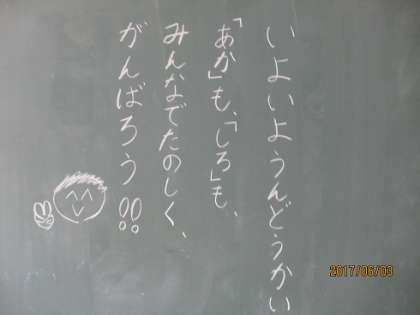 いよいようんどうかい
「あか」も、「しろ」も、
みんなでたのしく、
がんばろう!!
2017/06/03